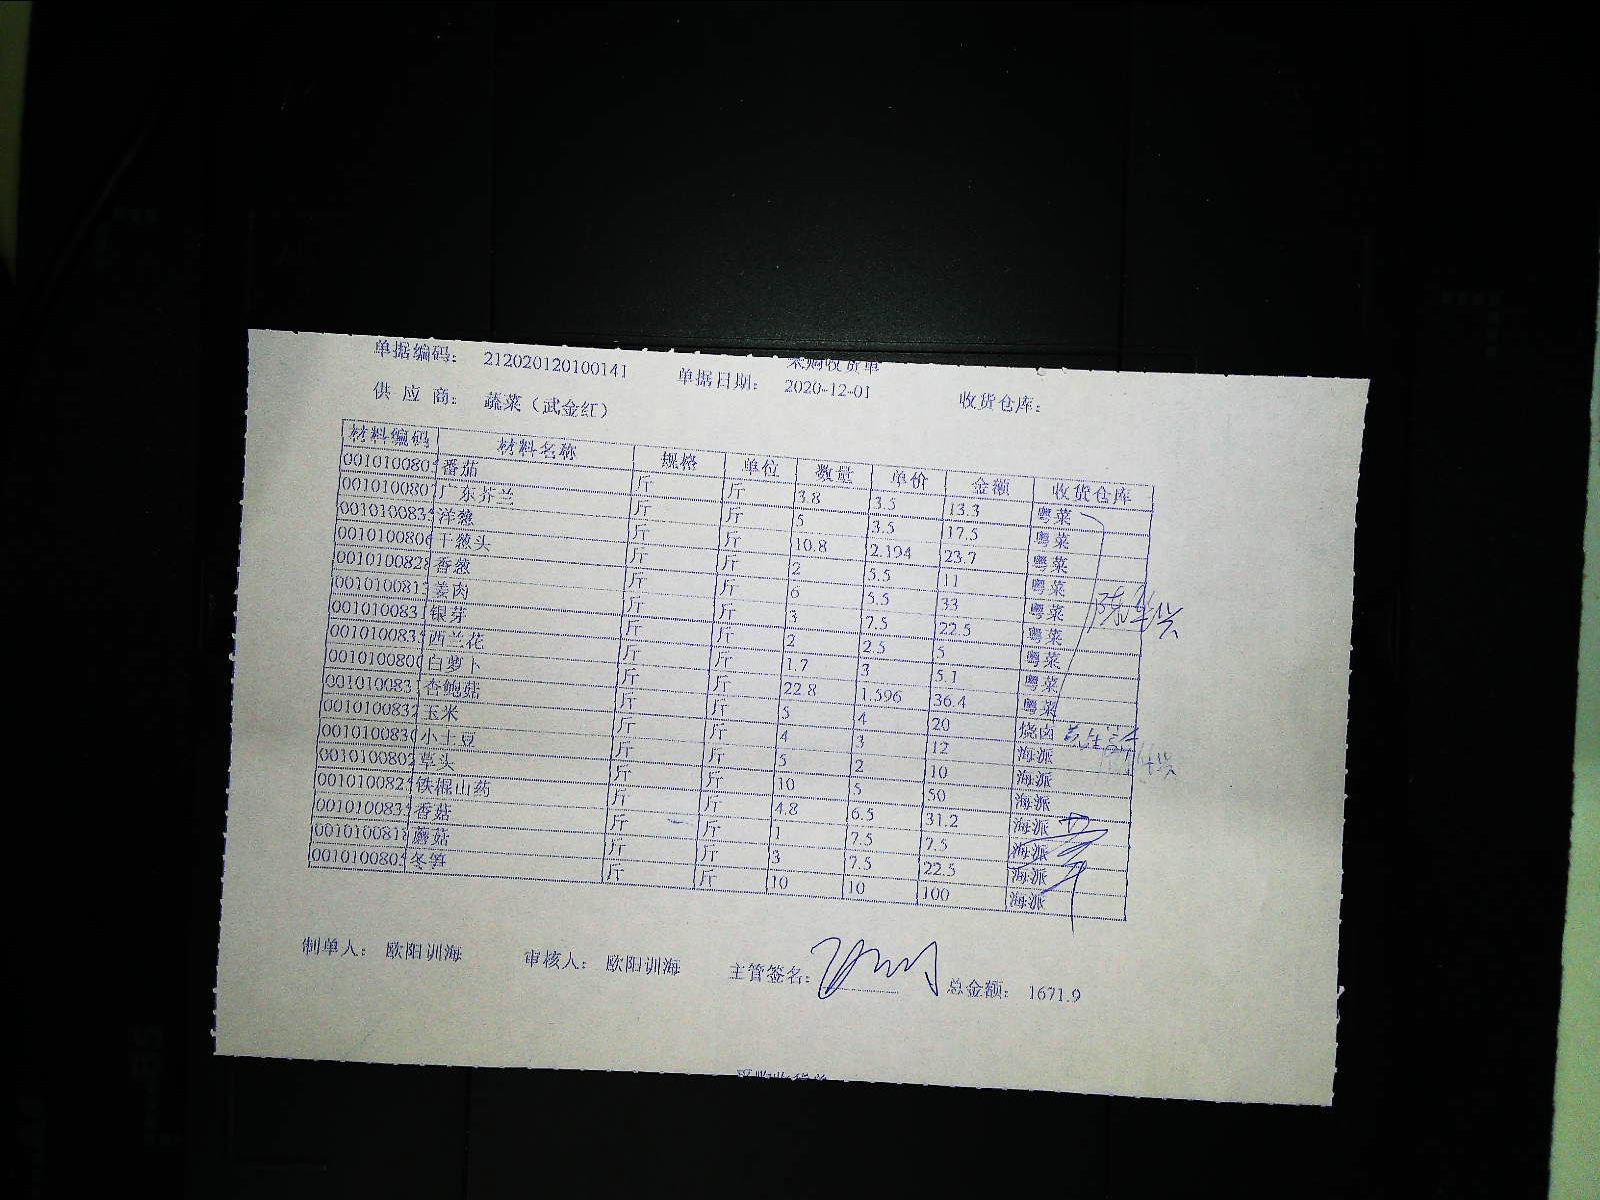 采购收货单
单据编码： 212020120100141 单据日期： 2020-12-01 收货仓库：
供 应 商： 蔬菜（武金红）
材料编码 材料名称 规格 单位 数量 单价 金额 收货仓库
001010080 番茄 斤 斤 3.8 3.5 13.3 粤菜
001010080 广东芥兰 斤 斤 5 3.5 17.5 粤菜
001010083 洋葱 斤 斤 10.8 2.194 23.7 粤菜
001010080 干葱头 斤 斤 2 5.5 11 粤菜
001010082 香葱 斤 斤 6 5.5 33 粤菜
001010081 姜肉 斤 斤 3 7.5 22.5 粤菜
001010083 银芽 斤 斤 2 2.5 5 粤菜
001010083 西兰花 斤 斤 1.7 3 5.1 粤菜
001010080 白萝卜 斤 斤 22.8 1.596 36.4 粤菜
001010083 杏鲍菇 斤 斤 5 4 20 烧卤
001010083 玉米 斤 斤 4 3 12 海派
001010083 小土豆 斤 斤 5 2 10 海派
001010080 草头 斤 斤 10 5 50 海派
001010082 铁棍山药 斤 斤 4.8 6.5 31.2 海派
001010083 香菇 斤 斤 1 7.5 7.5 海派
001010081 蘑菇 斤 斤 3 7.5 22.5 海派
001010080 冬笋 斤 斤 10 10 100 海派
制单人： 欧阳训海 审核人： 欧阳训海 主管签名： 总金额： 1671.9